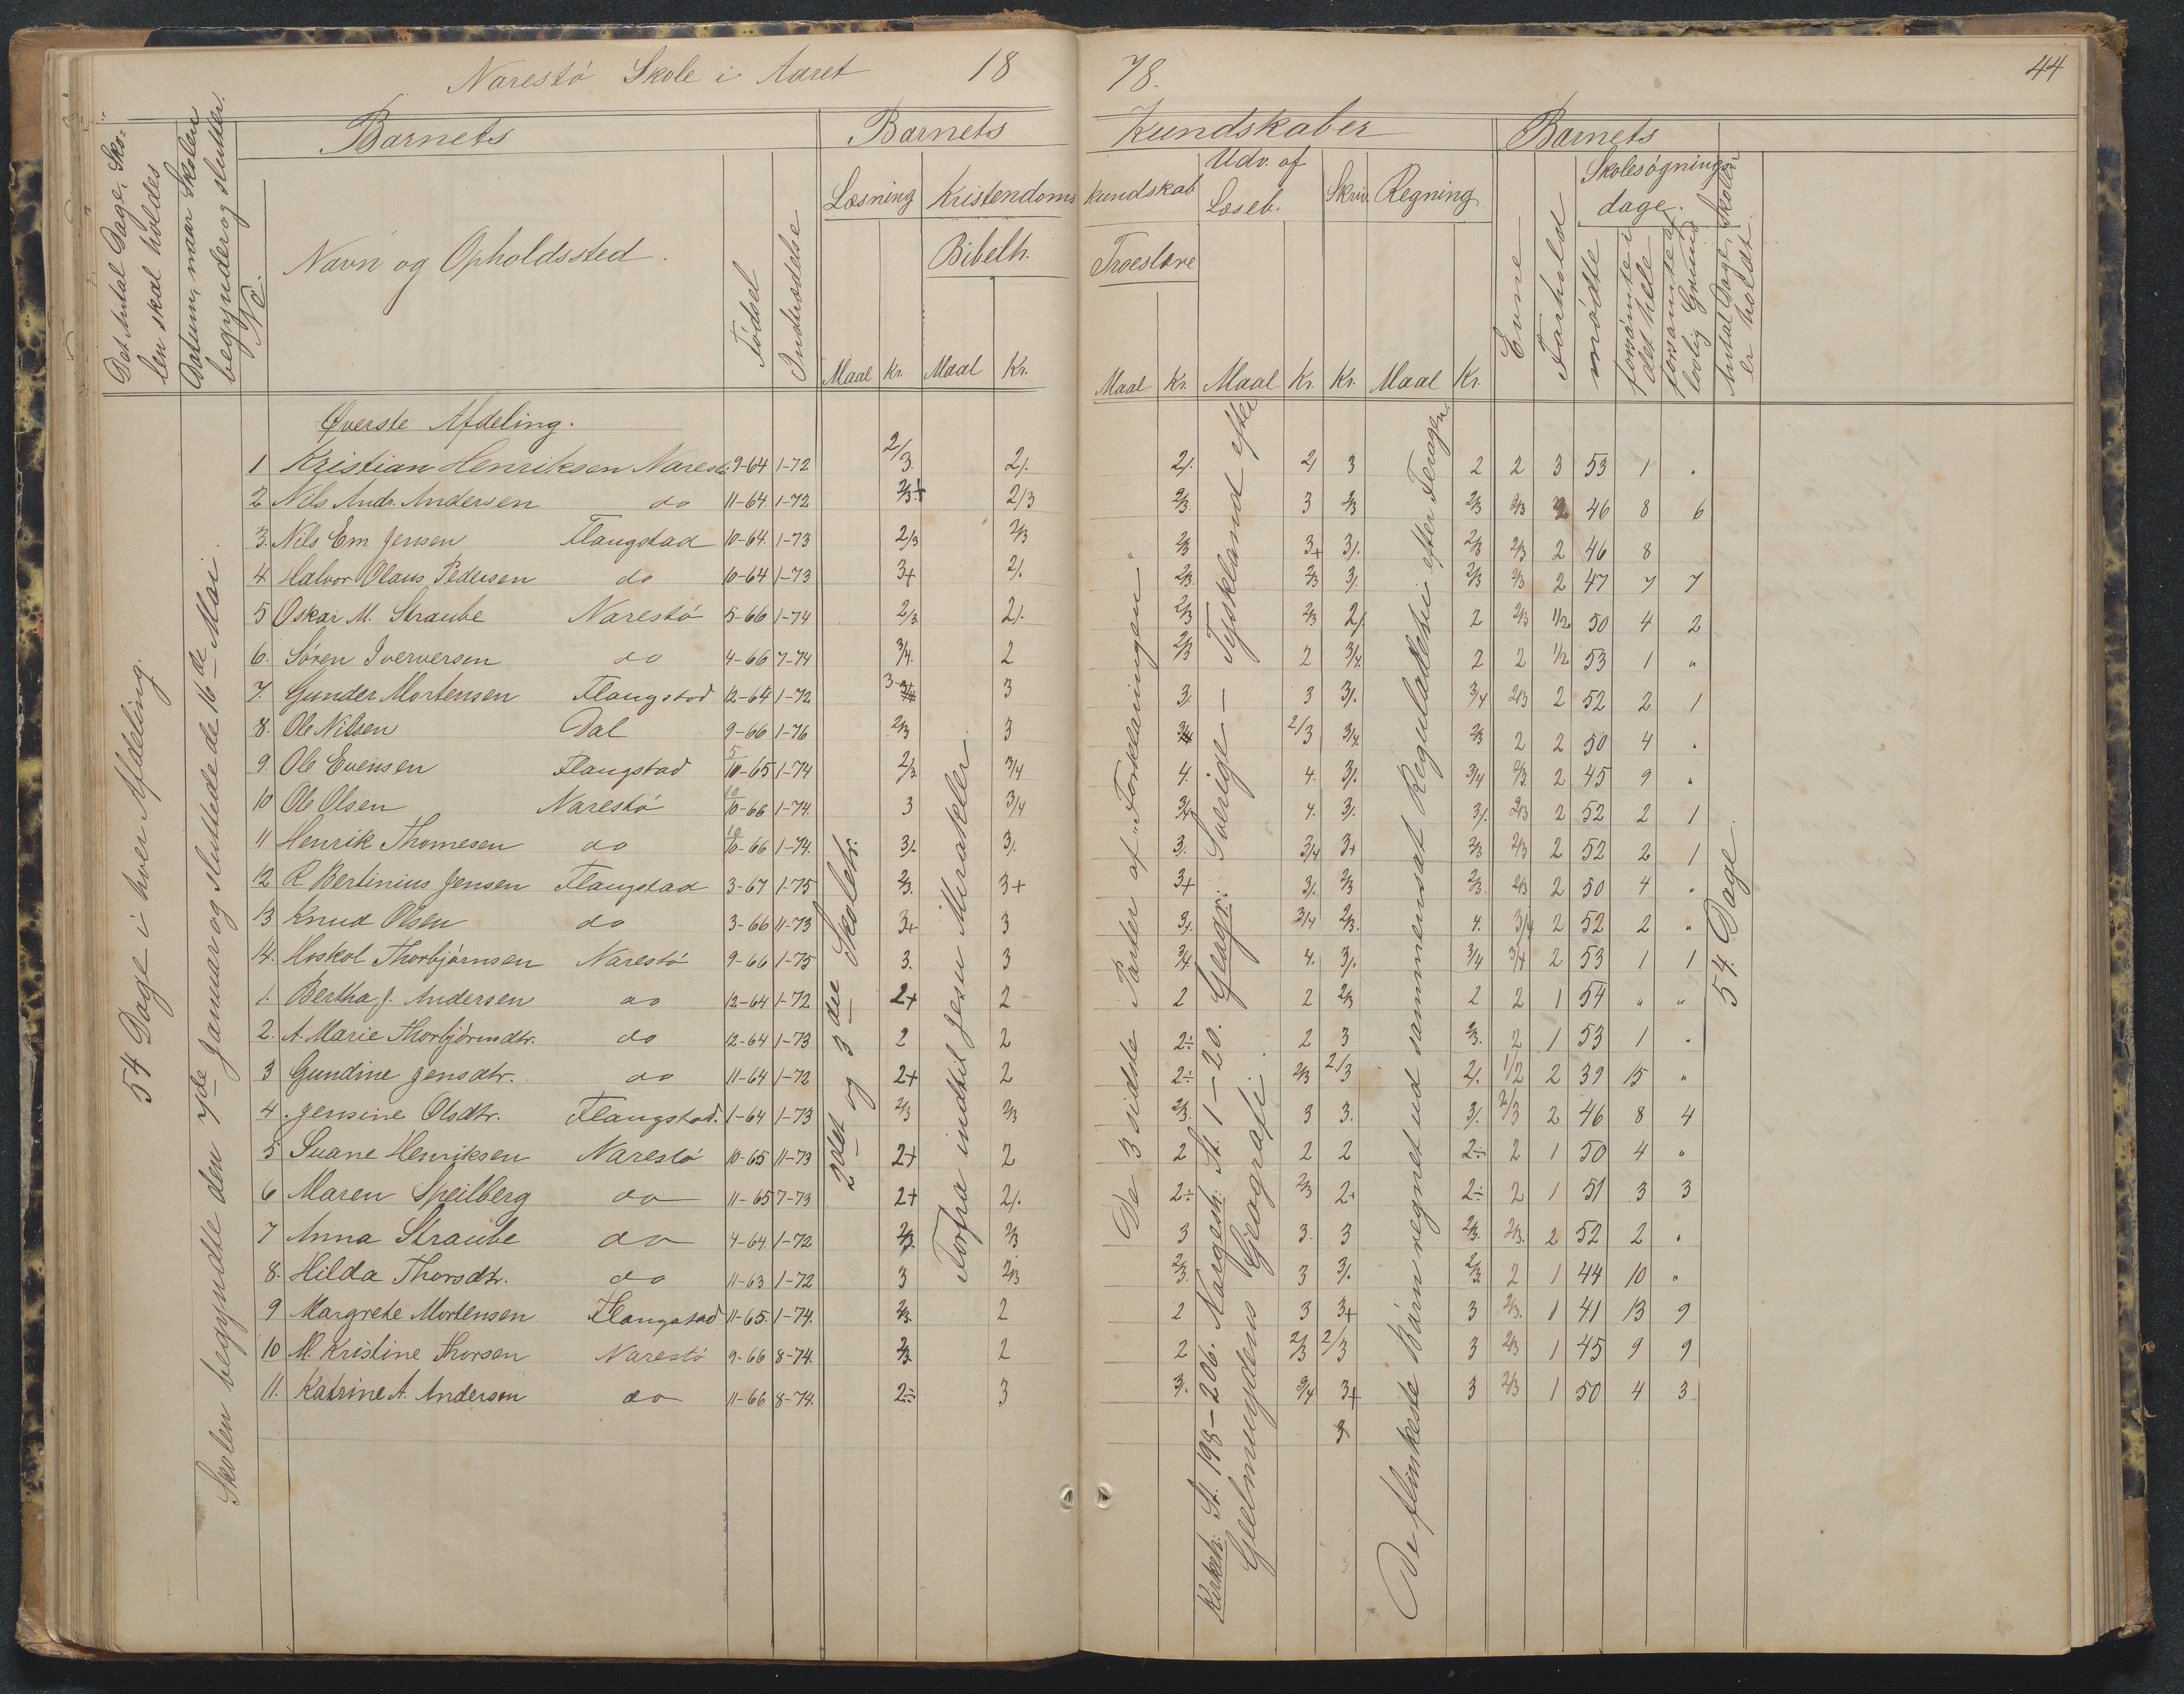 Narestö Skole i Aaret 18 78. 44
Barnets Barnets Kundskaber Barnets
Det Antal Dage, Sko-
len skal holdes
Datum, naar Skolen
begynder og slutter.
No.
Navn og Opholdssted.
Födsel
Indtrædelse
Læsning Kristendoms kundskab Udv. af Læseb. Skriv. Regning
Bibelh. Troeslære
Evne
Forhold
Skolesøgnings-
dage.
mødte
forsømte i
det hele
forsømte af
lovlig Grund
Antal Dage, Skolen
er holdt
Maal Kr. Maal Kr. Maal Kr. Maal Kr. Kr. Maal Kr.
Øverste Afdeling.
1 Kristian Henriksen Narestö 9-64 1-72 2/3. 2/. 2/. 2/ 3 2 2 3 53 1 "
2 Nils Andr. Andersen do 11-64. 1-72 2/3+ 2/3 2/3 3 2/3 2/3 2/3 2 46 8 6
3. Nils Em. Jensen Flangstad 10-64. 1-73 2/3 2/3 2/3 3+ 3/. 2/3 2/3 2 46 8
4 Halvor Olaus Pedersen do 10-64 1-73 3+ 2/. 2/3. 2/3 3/. 2/3 2/3 2 47 7 7
5 Oskar M. Straube Narestö 5-66 1-74 2/3 2/. 2/3 2/3 2/ 2 2/3 1/2 50 4 2
6. Sören Iverversen do 4-66 7-74 3/4. 2 2/3 2 3/4. 2 2 1/2 53 1 "
7. Gunder Mortensen Flangstad 12-64 1-72 3 3 3/ 3 3/. 3/4 2/3 2 52 2 1
8. Ole Nilsen Dal 9-66 1-76 2/3 3 3/4 2/3 3/4 2/3 2 2 50 4 "
9. Ole Evensen Flangstad 5/10-65 1-74 2/3 3/4 4. 4. 3/. 3/4 2/3 2 45 9 "
10 Ole Olsen Narestö 10/10-66 1-74. 3 3/4 3/4 4. 3/. 3/. 2/3 2 52 2 1
11 Henrik Thomesen do 10/10-66 1-74. 3/. 3/. 3. 3/4 3+ 2/3 2/3 2 52 2 1
12 R. Bertinius Jensen Flangstad 3-67 1-75 2/3. 3+ 3+ 3/. 2/3 2/3. 2/3 2 50 4 "
13 Knud Olsen do 3-66 11-73 3+ 3 3/. 3/4 2/3. 4. 3/4 2 52 2 "
14. Hoskol Thorbjörnsen Narestö 9-66 1-75 3. 3 3/4. 4. 3/. 3/4 3/4 2 53 1 1
1. Bertha J. Andersen do 12-64 1-72 2+ 2 2 2 2/3 2 2 1 54 " "
2. A. Marie Thorbjörnsdtr. do 12-64 1-73 2 2 2÷ 2 3 2/3. 2 1 53 1 "
3 Gundine Jensdtr. do 11-64 1-72 2+ 2 2÷ 2/3 2/3 2/. 1/2 2 39 15 "
4. Jensine Olsdtr. Flangstad. 1-64 1-73 2/3 2/3 2/3. 3 3. 3/. 2/3 2 46 8 4
5 Suane Henriksen Narestö 10-65 11-73 2+ 2 2 2 2 2÷ 2 1 50 4 "
6 Maren Speilberg do 11-65 7-73 2+ 2/. 2÷ 2/3 2+ 2÷ 2 1 51 3 3
7 Anna Straube do 4-64. 1-72 2/3. 2/3 3 3. 3 2/3. 2/3. 2 52 2 "
8. Hilda Thorsdtr. do 11-63 1-72 3 2/3 2/3. 3 3/. 2/3 2 1 44 10 "
9 Margrete Mortensen Flangstad 11-65. 1-74. 2/3. 2 2 3 3+ 3 2/3. 1 41 13 9
10 M. Kristine Thorsen Narestö 9-66 8-74. 2/3. 2 2 2/3 2/3 3 2/3 1 45 9 9
11. Katrine A. Andersen do 11-66 8-74. 2÷ 3 3/. 3/4 3+ 3 2/3 1 50 4 3
54 Dage i hver Afdeling.
Skolen begyndte den 7de Januar og sluttede de 16de Mai.
2det og 3die Skoletr.
Forfra indtil Jesu Mirakler.
De 3 sidste Parter af "Forklaringen"
Kirkeh: St. 198-206. Norgesh: St. 1-20. Geogr: Sverige — Tyskland efter
Geelmuydens Geografi.
De flinkeste Børn regnet ud sammensat Reguladetri efter
54 Dage.